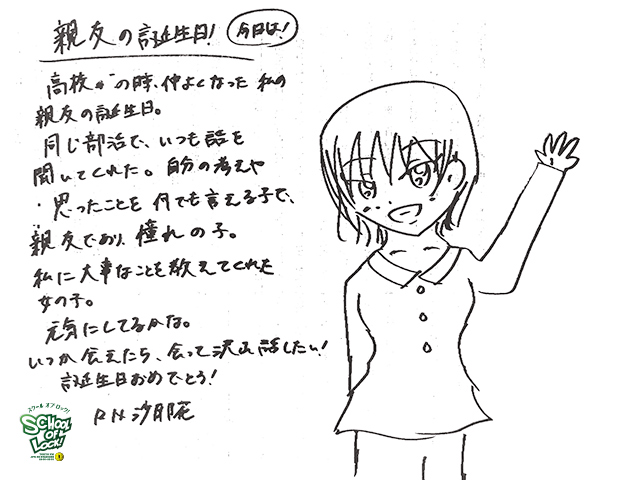 親友の誕生日! 今日は!
高校の時、仲よくなった私の
親友の誕生日。
同じ部活で、いつも話を
聞いてくれた。自分の考えや
思ったことを何でも言える子で、
親友であり、憧れの子。
私に大事なことを教えてくれた
女の子。
元気にしてるかな。
いつか会えたら、会って沢山話したい!
誕生日おめでとう!
P.N 沙耶苑
スクール オブ ロック!
SCHOOL
OF
LOCK!